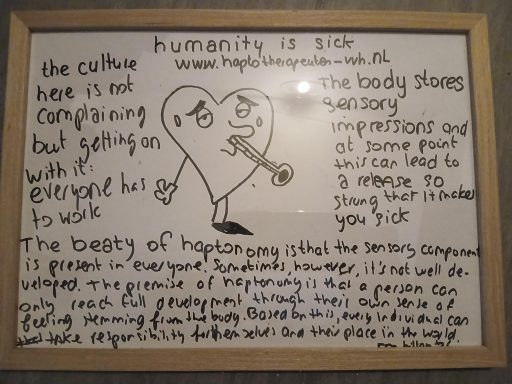 humanity is sick
www.haptotherapeuten-wh.nL
the culture
here is not
complaining
but getting on
with it:
everyone has
to work
The body stores
sensory
impressions and
at some point
this can lead to
a release so
strong that it makes
you sick
The beaty of haptonomy is that the sensory component
is present in everyone. Sometimes, however, it's not well de-
veloped. The premise of haptonomy is that a person can
only reach full development through their own sense of
feeling stemming from the body. Based on this, every individual can
take responsibility for themselves and their place in the world.